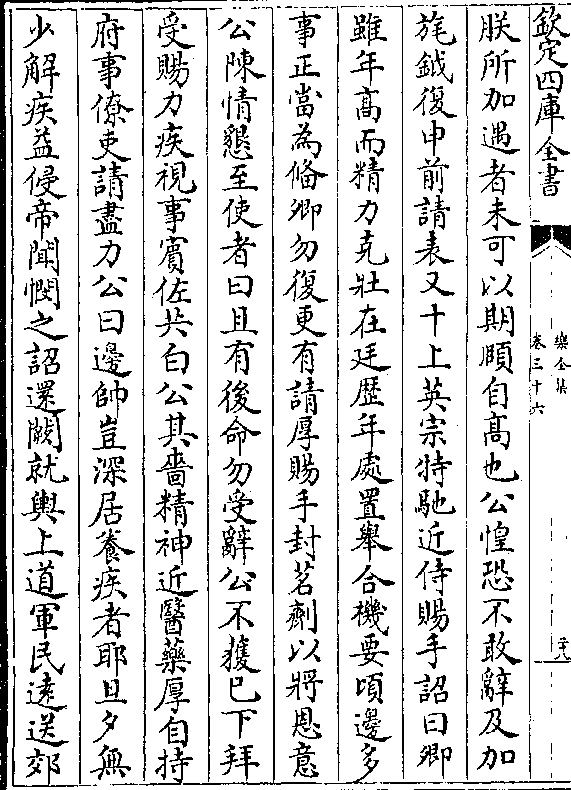 欽定四庫全書
樂全集
卷三十六
二十八
朕所加遇者未可以期頤自髙也公惶恐不敢辭及加
旄鉞復申前請表又十上英宗特馳近侍賜手詔曰卿
雖年髙而精力克壯在廷歴年處置舉合機要頃邊多
事正當為俻卿勿復更有請厚賜手封茗劑以將恩意
公陳情懇至使者曰且有後命勿受辭公不獲已下拜
受賜力疾視事賔佐共白公其嗇精神近醫藥厚自持
府事僚吏請盡力公曰邊帥豈深居養疾者耶旦夕無
少解疾益侵帝聞憫之詔還闕就輿上道軍民逺送郊